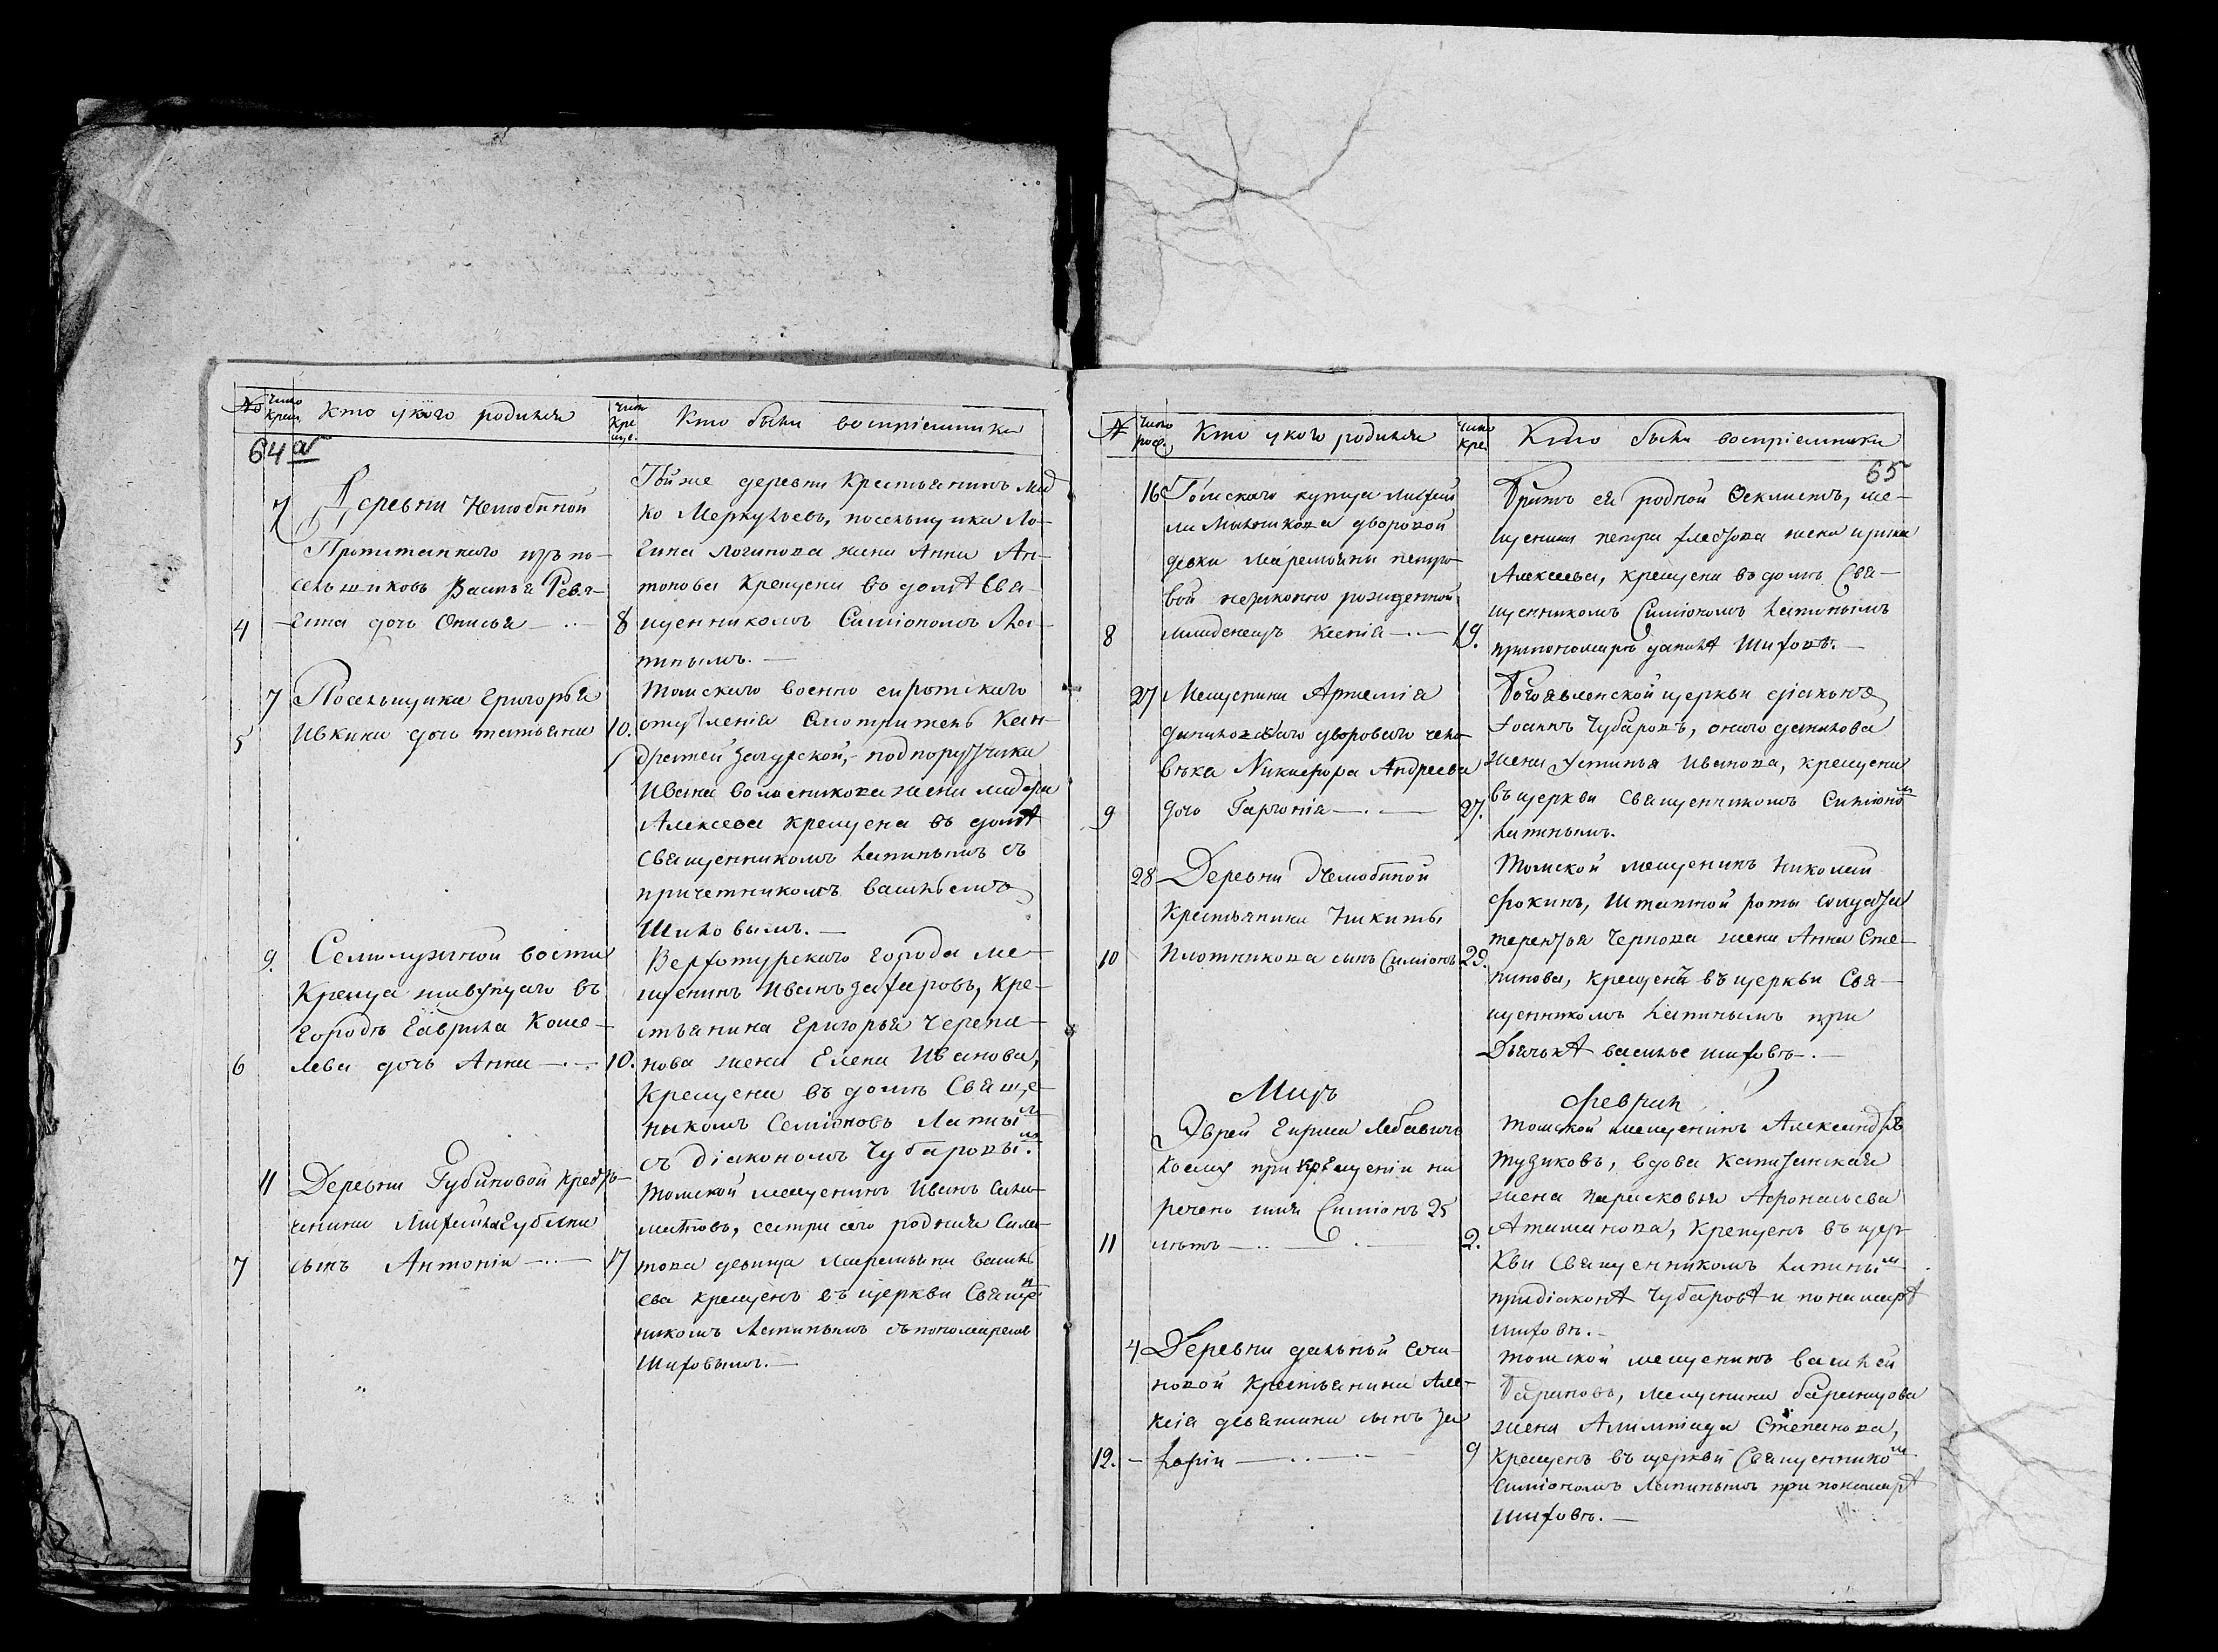 № Число крещ. Кто у кого родился Число креще. Кто были восприемники
64 а
7 Деревни Нелюбиной
Пропитаннаго изъ по-
сельшиковъ Василья Ревя-
4 гина дочь Опилья 8
Той же деревни крестьянинъ
ко Меркульевъ, посельщика Ло-
гина Логинова жена Анна Ан-
тонова крещена въ домѣ Свя-
щенникомъ Симіономъ Ла-
пинымъ.
7 Посельщика Григорья
5 Ивкина дочь татьяна 10.
Томскаго военно сиротскаго
отделенія Смотритель Кон-
дратей подпорутчика
Ивана жена
Алексева крещена въ домѣ
Священникомъ Лапинымъ съ
причетникомъ Васильемъ
Шиховымъ.
9. Семилужной волости
Креща живущаго въ
городѣ Гаврила Коше-
6 лева дочь Анна 10.
Верхотурскаго города ме-
щенинъ Иванъ Захаровъ, Кре-
стьянина Григорья Черепа-
нова жена Елена Иванова,
крещена въ домѣ Свяще-
никомъ Семіновъ Лапины м
съ діакономъ Чубаровы м.
11 Деревни Губиновой кресть-
енина Михайла Губина
7 сынъ Антоній 17
Томской мещенинъ Иванъ Сили-
матовъ, сестра его родная Сила-
това девица Маремьяна Василь
ева крещенъ въ церкви Свяще н
никомъ Лапинымъ съ пономаремъ
Шиховымъ.
№ Число рожд. Кто у кого родился Число кре. Кто были восприемники
65
16 Томскаго купца Михай
ла Мыльникова дворовой
девки Маремьяны петро-
вой незаконно рожденной
8 младенецъ Ксенія 19.
Братъ ея родной Феклистъ, ме-
щенина петра жена ирина
Алексеева, крещена въ домѣ Свя-
щенникомъ Симіономъ Лапинымъ
при пономарѣ Шиховѣ.
27 Мещенина Артемія
Данилова дворового чело
века Никифора Андреева
9 дочь Гаргонія 27.
Богоявленской церкви діаконъ
Іоаннъ Чубаровъ, онаго данилова
жена Устинья Иванова, крещена
въ церкви Священникомъ Симіоно м
Лапинымъ.
28 Деревни Нелюбиной
Крестьянина Никиты
10 Плотникова сынъ Симіонъ 29.
Томской мещенинъ Николай
Фокинъ, Штатной роты солдата
терентья Чернова жена Анна Сте-
панова, крещенъ въ церкви Свя-
щенникомъ Лапинымъ при
Дьячкѣ Василье Шиховѣ.
Февраль
Еврей Гирша Лебавичъ
коему при крещеніи на
речено имя Симіонъ 25
11 летъ 2.
Томской мещенинъ Александръ
Тузиковъ, вдова Капитанская
жена парасковья Афонасьева
Аташанова, крещенъ въ цер
кви Священникомъ Лапины м
при діаконѣ Чубаровѣ и понамарѣ
Шиховѣ.
4 Деревни дальной Сени-
новой крестьянина Але-
ксія девяшина сынъ За
12. харій 9
Томской мещенинъ Василей
Бариновъ, мещенина
жена Алимпіада Степанова,
крещенъ въ церкви Священнико м
Симіономъ Лапинымъ при понамарѣ
Шиховѣ.